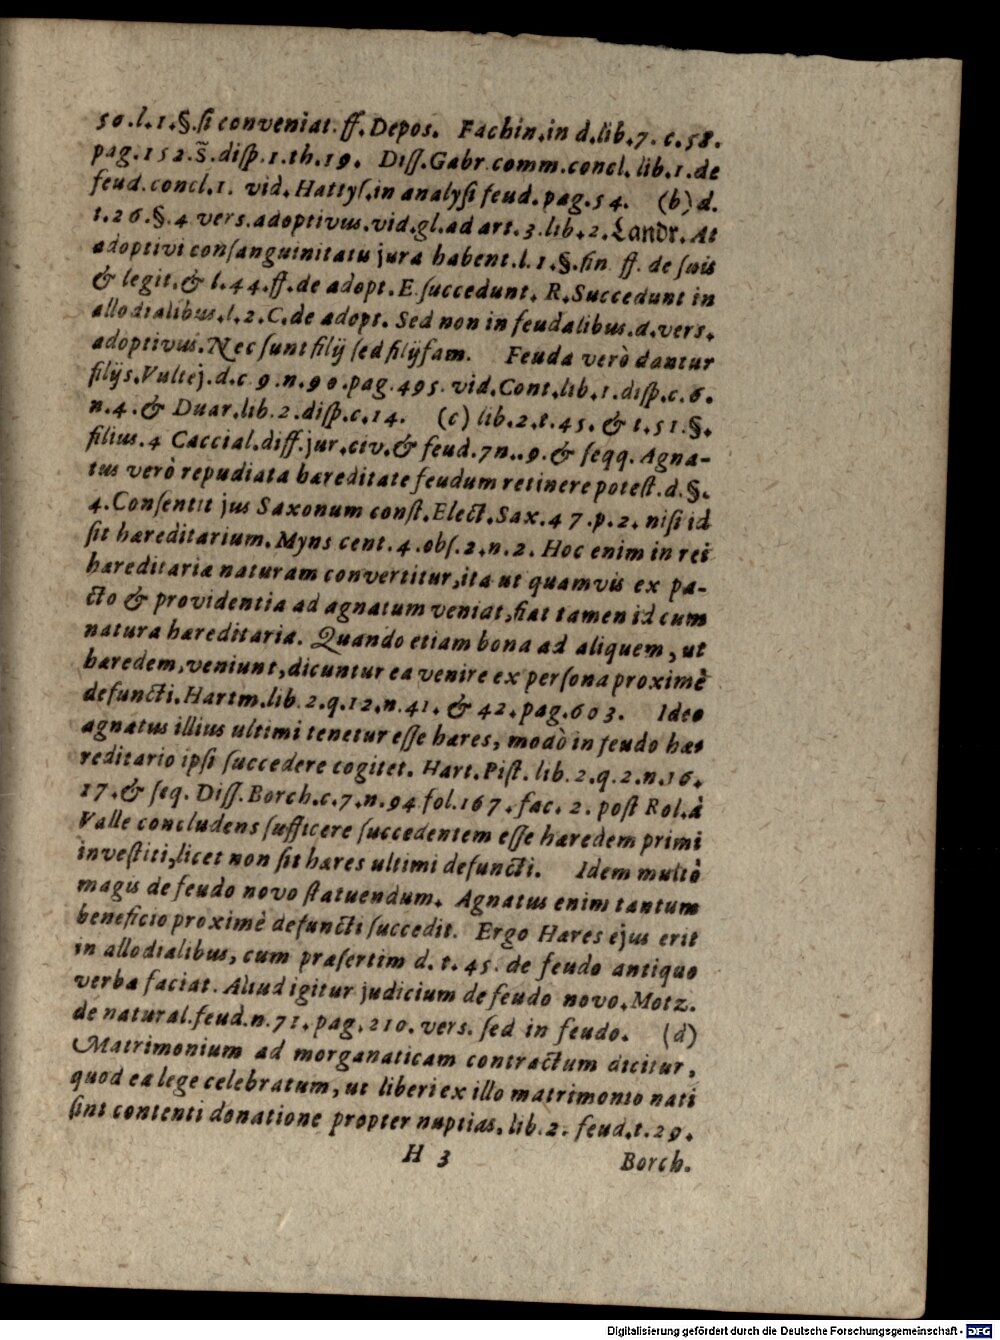 50.l.1.§.ſi conveniat.ff.Depos. Fachin.in d.lib.7.c.58.
pag.152.§̃.diſp.1.th.19. Diſſ.Gabr.comm.concl.lib.1.de
feud.concl.1. vid.Hattyſ.in analyſi feud.pag.54. (b) d.
t.26.§.4 vers.adoptivus.vid.gl.ad art.3.lib.2.Landr.At
adoptivi conſanguinitatis jura habent.l.1.§.fin ff.de ſuis
& legit.& l.44.ff.de adopt.E.ſuccedunt. R.Succedunt in
allodialibus.l.2.C.de adopt. Sed non in feudalibus.d.vers.
adoptivus.Nec ſunt filij ſed filijfam. Feuda verò dantur
filijs.Vultej.d.c.9.n.90.pag.495.vid.Cont.lib.1.diſp.c.6.
n.4.& Duar.lib.2.diſp.c.14. (c) lib.2.t.45.& t.51.§.
filius.4 Caccial.diff.jur.civ.& feud.7n..9.& ſeqq. Agna-
tus verò repudiata hæreditate feudum retinere poteſt.d.§.
4.Conſentit jus Saxonum conſt.Elect.Sax.47.p.2. niſi id
ſit hæreditarium.Myns cent.4.obſ.2.n.2. Hoc enim in rei
hæreditariæ naturam convertitur,ita ut quamvis ex pa-
cto & providentia ad agnatum veniat,fiat tamen id cum
natura hæreditaria. Quando etiam bona ad aliquem, ut
hæredem,veniunt,dicuntur ea venire ex perſona proximè
defuncti.Hartm.lib.2.q.12.n.41.& 42.pag.603. Ideo
agnatus illius ultimi tenetur eſſe hæres, modò in feudo hæ-
reditario ipſi ſuccedere cogitet. Hart.Piſt.lib.2.q.2.n.16.
17.& ſeq. Diſſ.Borch.c.7.n.94 fol.167.fac.2. poſt Rol.à
Valle concludens ſufficere ſuccedentem eſſe hæredem primi
inveſtiti,licet non ſit hæres ultimi defuncti. Idem multò
magis de feudo novo ſtatuendum. Agnatus enim tantum
beneficio proximè defuncti ſuccedit. Ergo Hæres ejus erit
in allodialibus, cum præſertim d.t.45. de feudo antiquo
verba faciat. Aliud igitur judicium de feudo novo.Motz.
de natural.feud.n.71.pag.210.vers. ſed in feudo. (d)
Matrimonium ad morganaticam contractum dicitur,
quod ea lege celebratum, ut liberi ex illo matrimonio nati
ſint contenti donatione propter nuptias.lib.2. feud.t.29.
H 3 Borch.
Digitalisierung gefördert durch die Deutsche Forschungsgemeinschaft - DFG